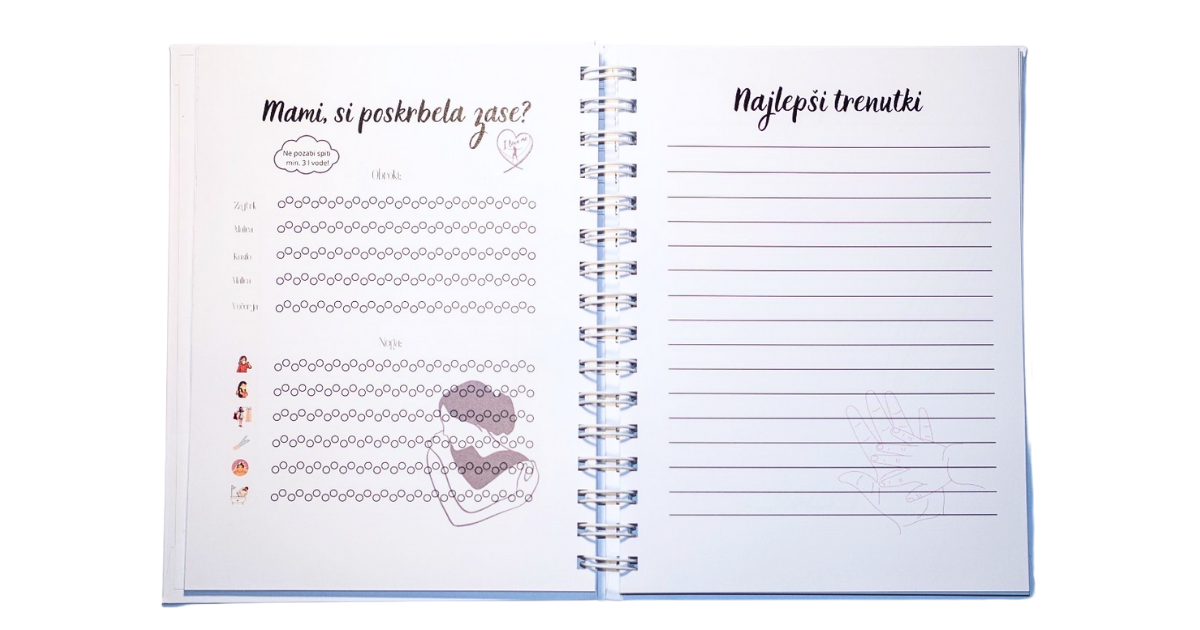 Mami, si poskrbela zase?
Ne pozabi spiti
min. 3 l vode!
I love me
Obroki:
Zajtrk
Malica
Kosilo
Malica
Večerja
Nega:
Najlepši trenutki